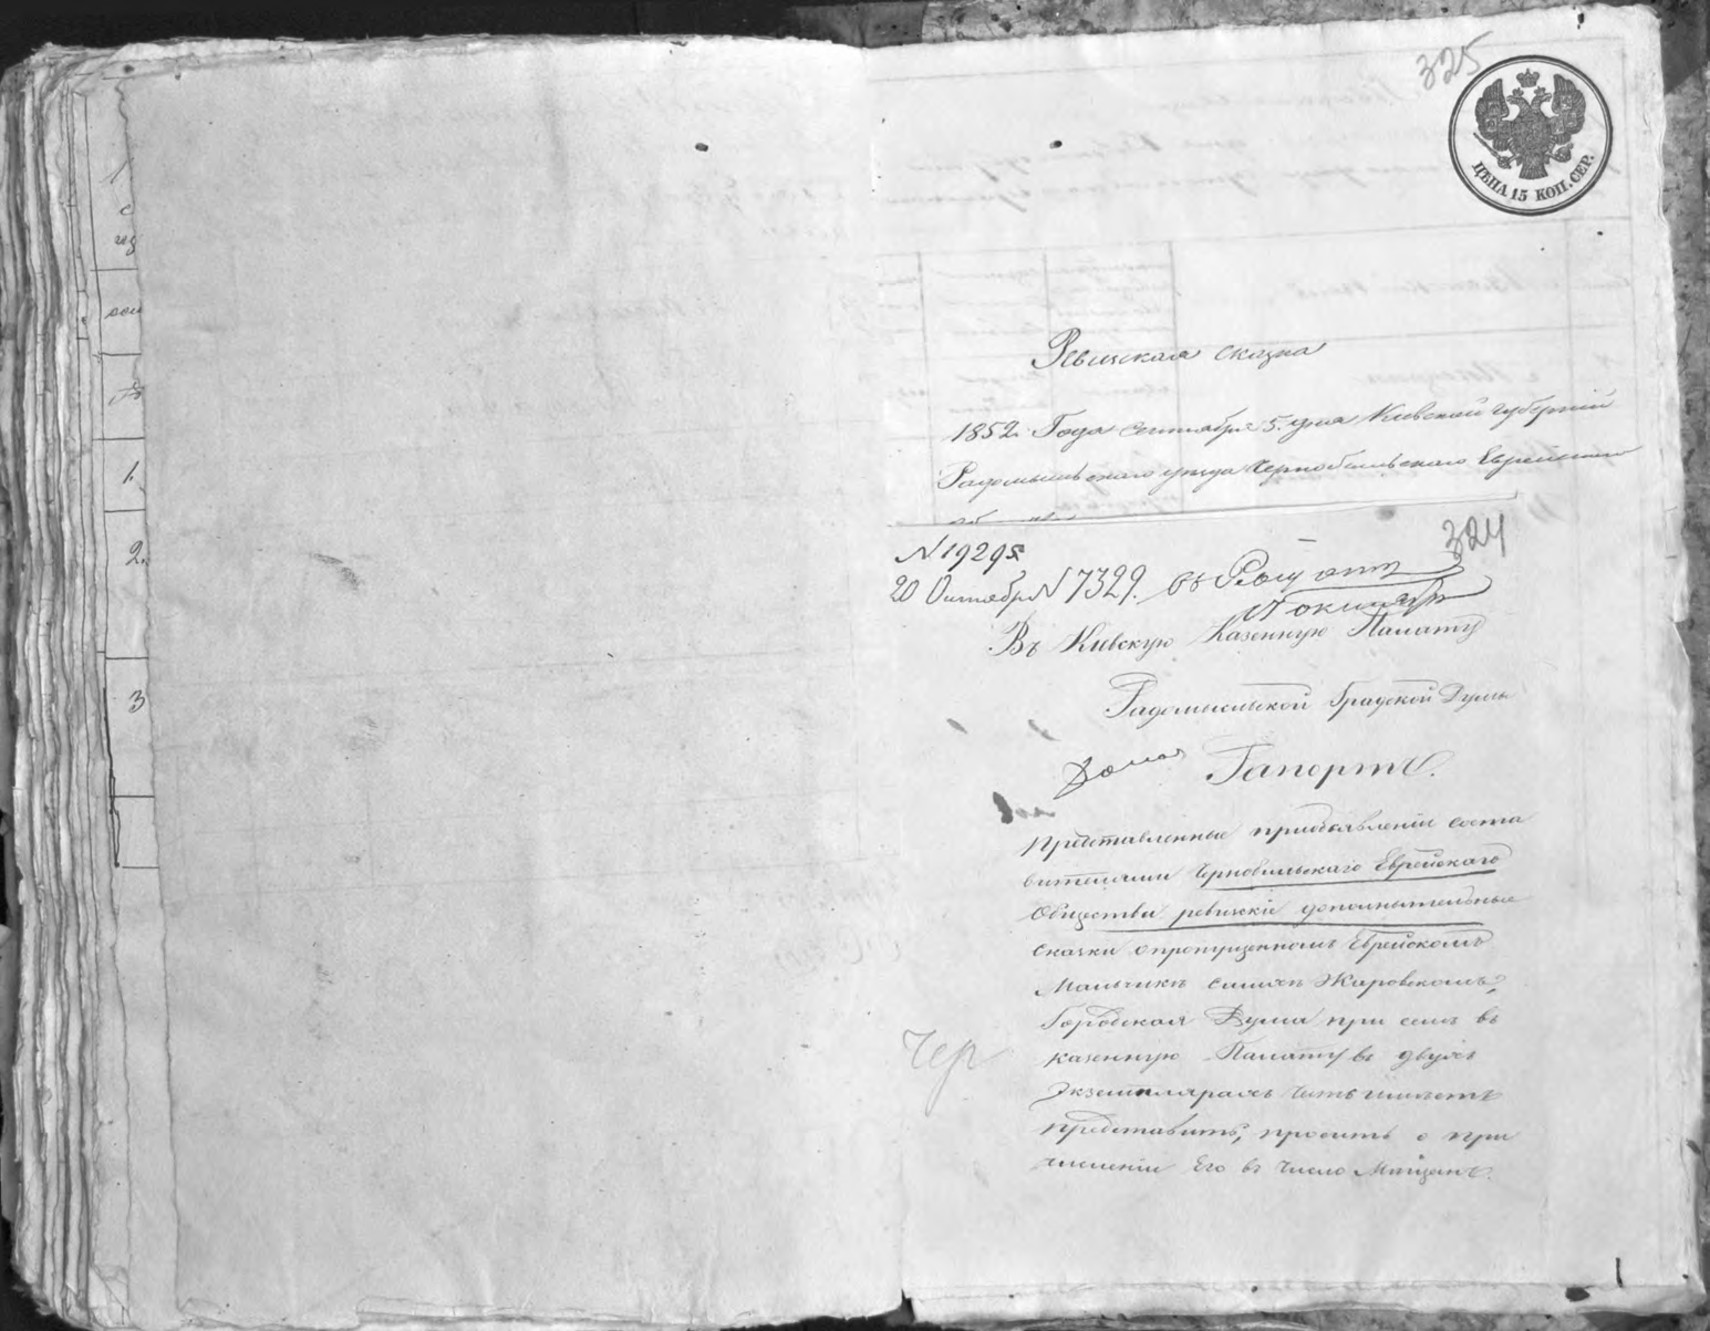 325
ЦѢНА 15 КОП. СЕР.
Ревизская сказка
1852 Года Сентября 5. дня Киевской губерніи
Радомысльскаго уезда Чернобыльскаго Еврейскаго
324
N 19295
20 Октября N 7329. въ
Въ Киевскую Казенную Палату
Радомысльской Градской Думы
Рапортъ.
Представленные при объявленіи соста
вителями Чернобыльскаго Еврейскаго
Общества ревизскіе дополнительные
сказки о пропущенномъ Еврейскомъ
Мальчике Жаровскомъ,
Городская Дума при семъ въ
казенную Палату въ двухъ
Экземплярахъ честь имѣетъ
представить, просить о при
численіи Его въ число Мѣщанъ.
Чер
1
2.
3
1.